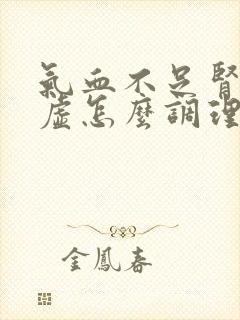 氣血不足腎
虛怎麼調理
金鳳春